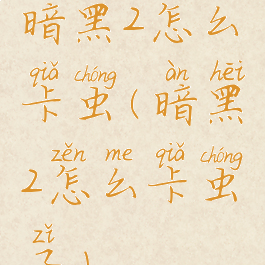 暗黑2怎么
qiǎ chóng àn hēi
卡虫(暗黑
zěn me qiǎ chóng
2怎么卡虫
zǐ
子)